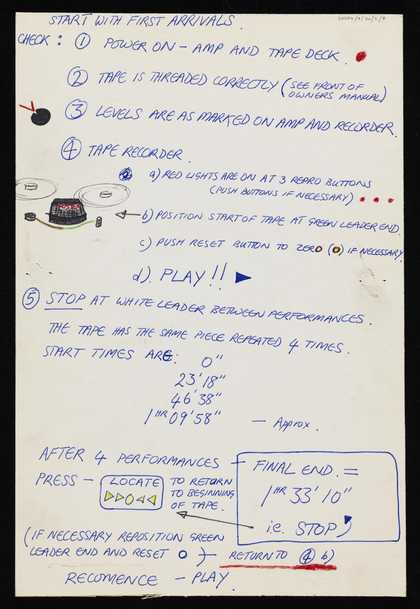 START WITH FIRST ARRIVALS.
CHECK : ① POWER ON – AMP AND TAPE DECK.
② TAPE IS THREADED CORRECTLY (SEE FRONT OF
OWNERS MANUAL)
③ LEVELS ARE AS MARKED ON AMP AND RECORDER.
④ TAPE RECORDER.
a) RED LIGHTS ARE ON AT 3 REPRO BUTTONS
(PUSH BUTTONS IF NECESSARY)
b) POSITION START OF TAPE AT GREEN LEADER END.
c) PUSH RESET BUTTON TO ZERO (0) IF NECESSARY.
d). PLAY!! ▶
⑤ STOP AT WHITE LEADER BETWEEN PERFORMANCES.
THE TAPE HAS THE SAME PIECE REPEATED 4 TIMES.
START TIMES ARE: 0"
23'18"
46'38"
1HR 09'58" — Approx.
AFTER 4 PERFORMANCES –
PRESS – LOCATE TO RETURN
▷▷0◁◁ TO BEGINNING
OF TAPE.
FINAL END. =
1HR 33'10"
i.e. STOP)
(IF NECESSARY REPOSITION GREEN
LEADER END AND RESET 0 )– RETURN TO ④ b)
RECOMENCE – PLAY.